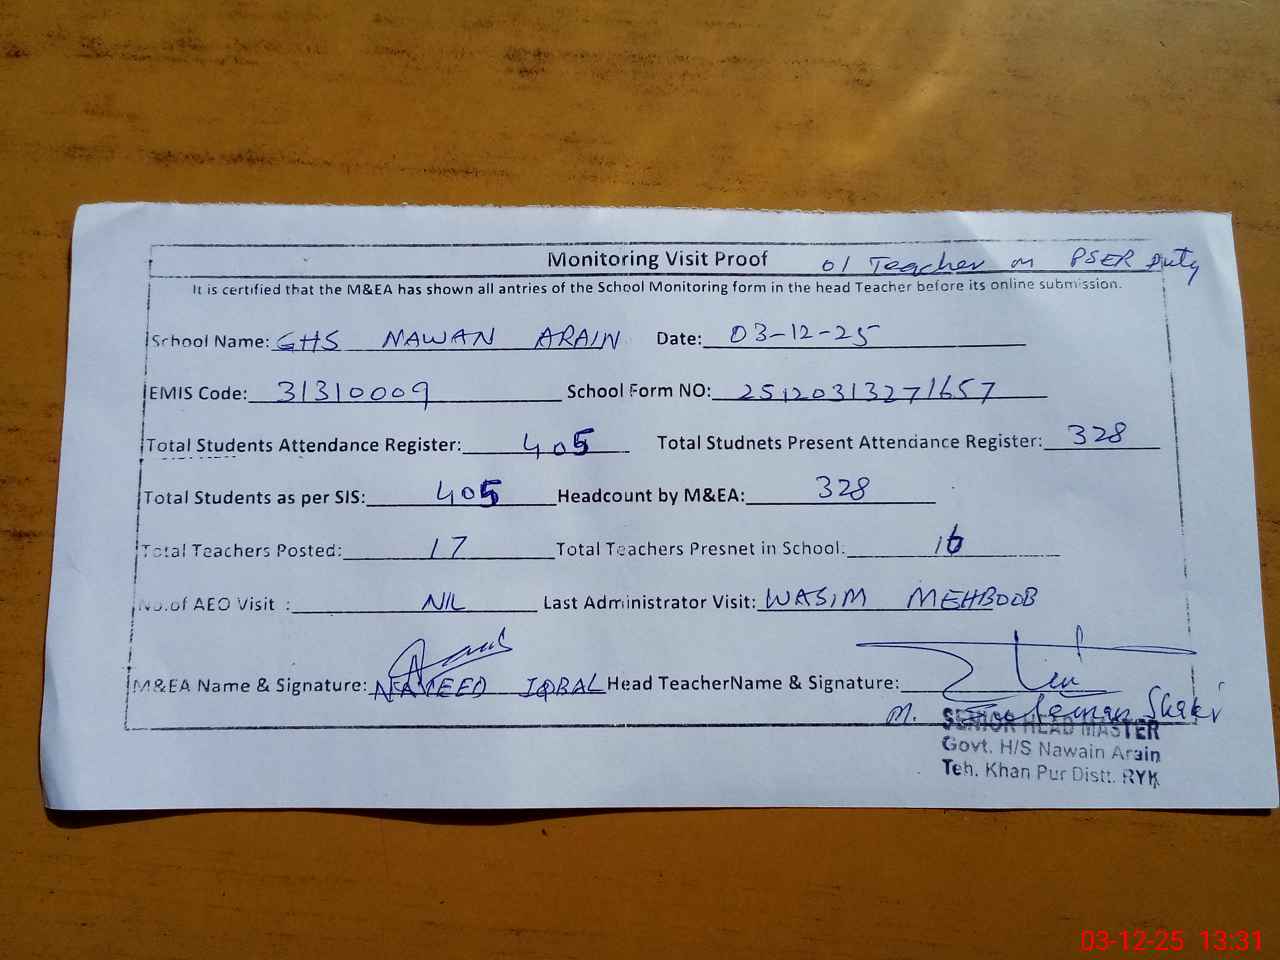 Monitoring Visit Proof 01 Teacher on PSER Duty
It is certified that the M&EA has shown all antries of the School Monitoring form in the head Teacher before its online submission.
School Name: GHS NAWAN ARAIN Date: 03-12-25
EMIS Code: 31310009 School Form NO: 25120313271657
Total Students Attendance Register: 405 Total Studnets Present Attendance Register: 328
Total Students as per SIS: 405 Headcount by M&EA: 328
Total Teachers Posted: 17 Total Teachers Presnet in School: 16
No.of AEO Visit : NIL Last Administrator Visit: WASIM MEHBOOB
M&EA Name & Signature: NAVEED IQBAL Head TeacherName & Signature:
M.
SENIOR HEAD MASTER
Govt. H/S Nawain Arain
Teh. Khan Pur Distt. RYK
03-12-25 13:31